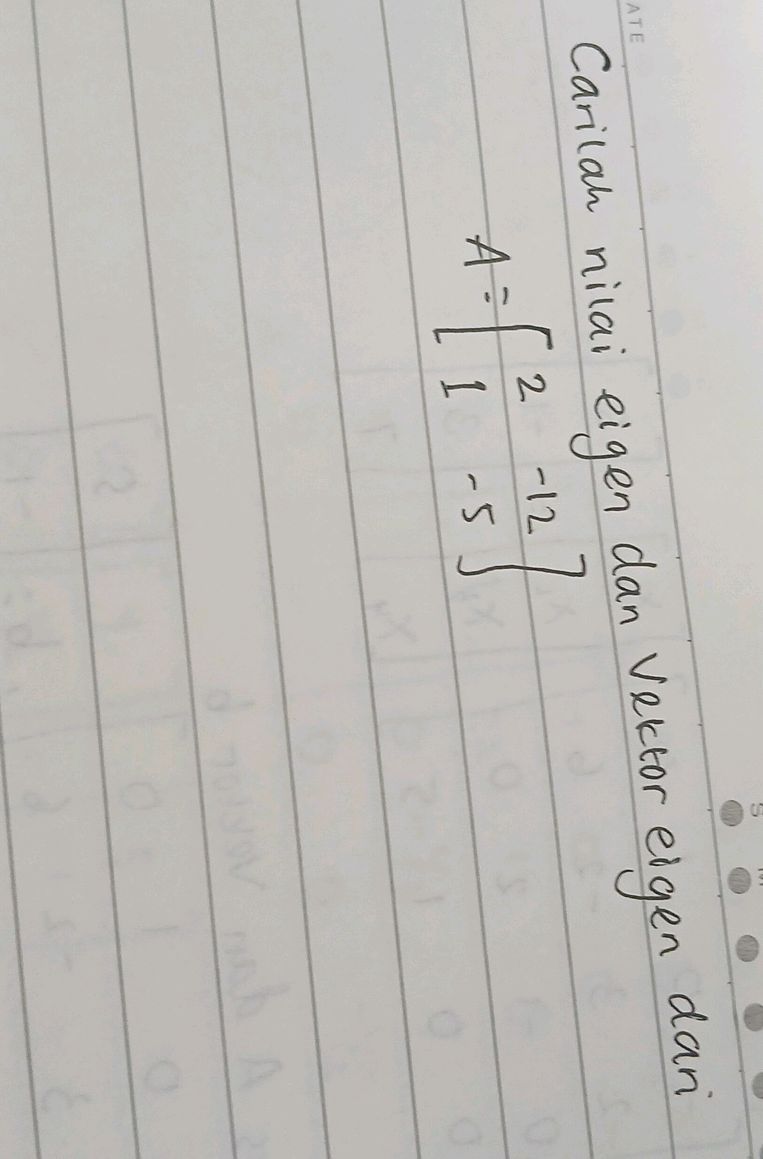 ATE
S M
Carilah nilai eigen dan Vektor eigen dari
A = [ 2 -12
1 -5 ]